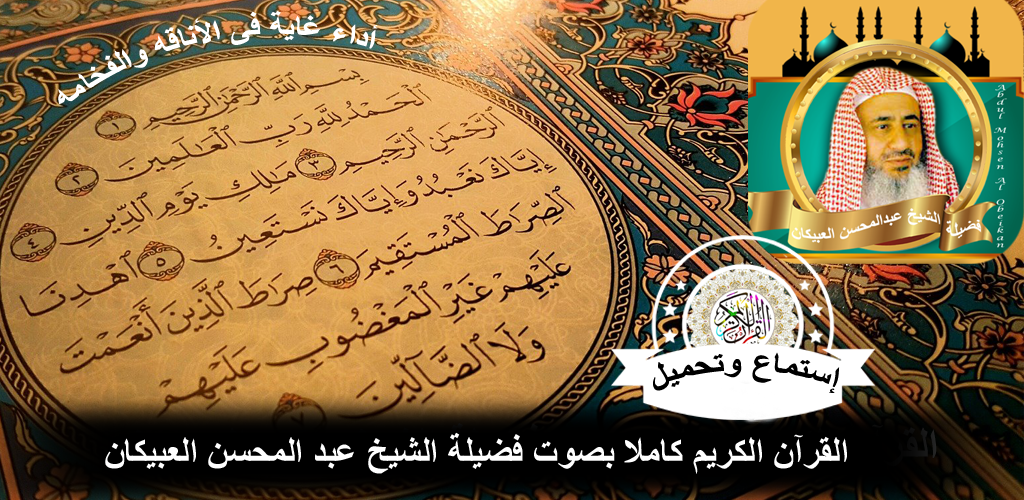 اداء غاية فى الاناقه والفخامه
بِسْمِ ٱللَّهِ ٱلرَّحْمَٰنِ ٱلرَّحِيمِ ١
ٱلْحَمْدُ لِلَّهِ رَبِّ ٱلْعَٰلَمِينَ ٢
ٱلرَّحْمَٰنِ ٱلرَّحِيمِ ٣ مَٰلِكِ يَوْمِ ٱلدِّينِ ٤
إِيَّاكَ نَعْبُدُ وَإِيَّاكَ نَسْتَعِينُ ٥ ٱهْدِنَا
ٱلصِّرَٰطَ ٱلْمُسْتَقِيمَ ٦ صِرَٰطَ ٱلَّذِينَ أَنْعَمْتَ
عَلَيْهِمْ غَيْرِ ٱلْمَغْضُوبِ عَلَيْهِمْ
وَلَا ٱلضَّآلِّينَ ٧
Abdul Mohsen Al Obeikan
فضيلة الشيخ عبدالمحسن العبيكان
إستماع وتحميل
القرآن الكريم كاملا بصوت فضيلة الشيخ عبد المحسن العبيكان